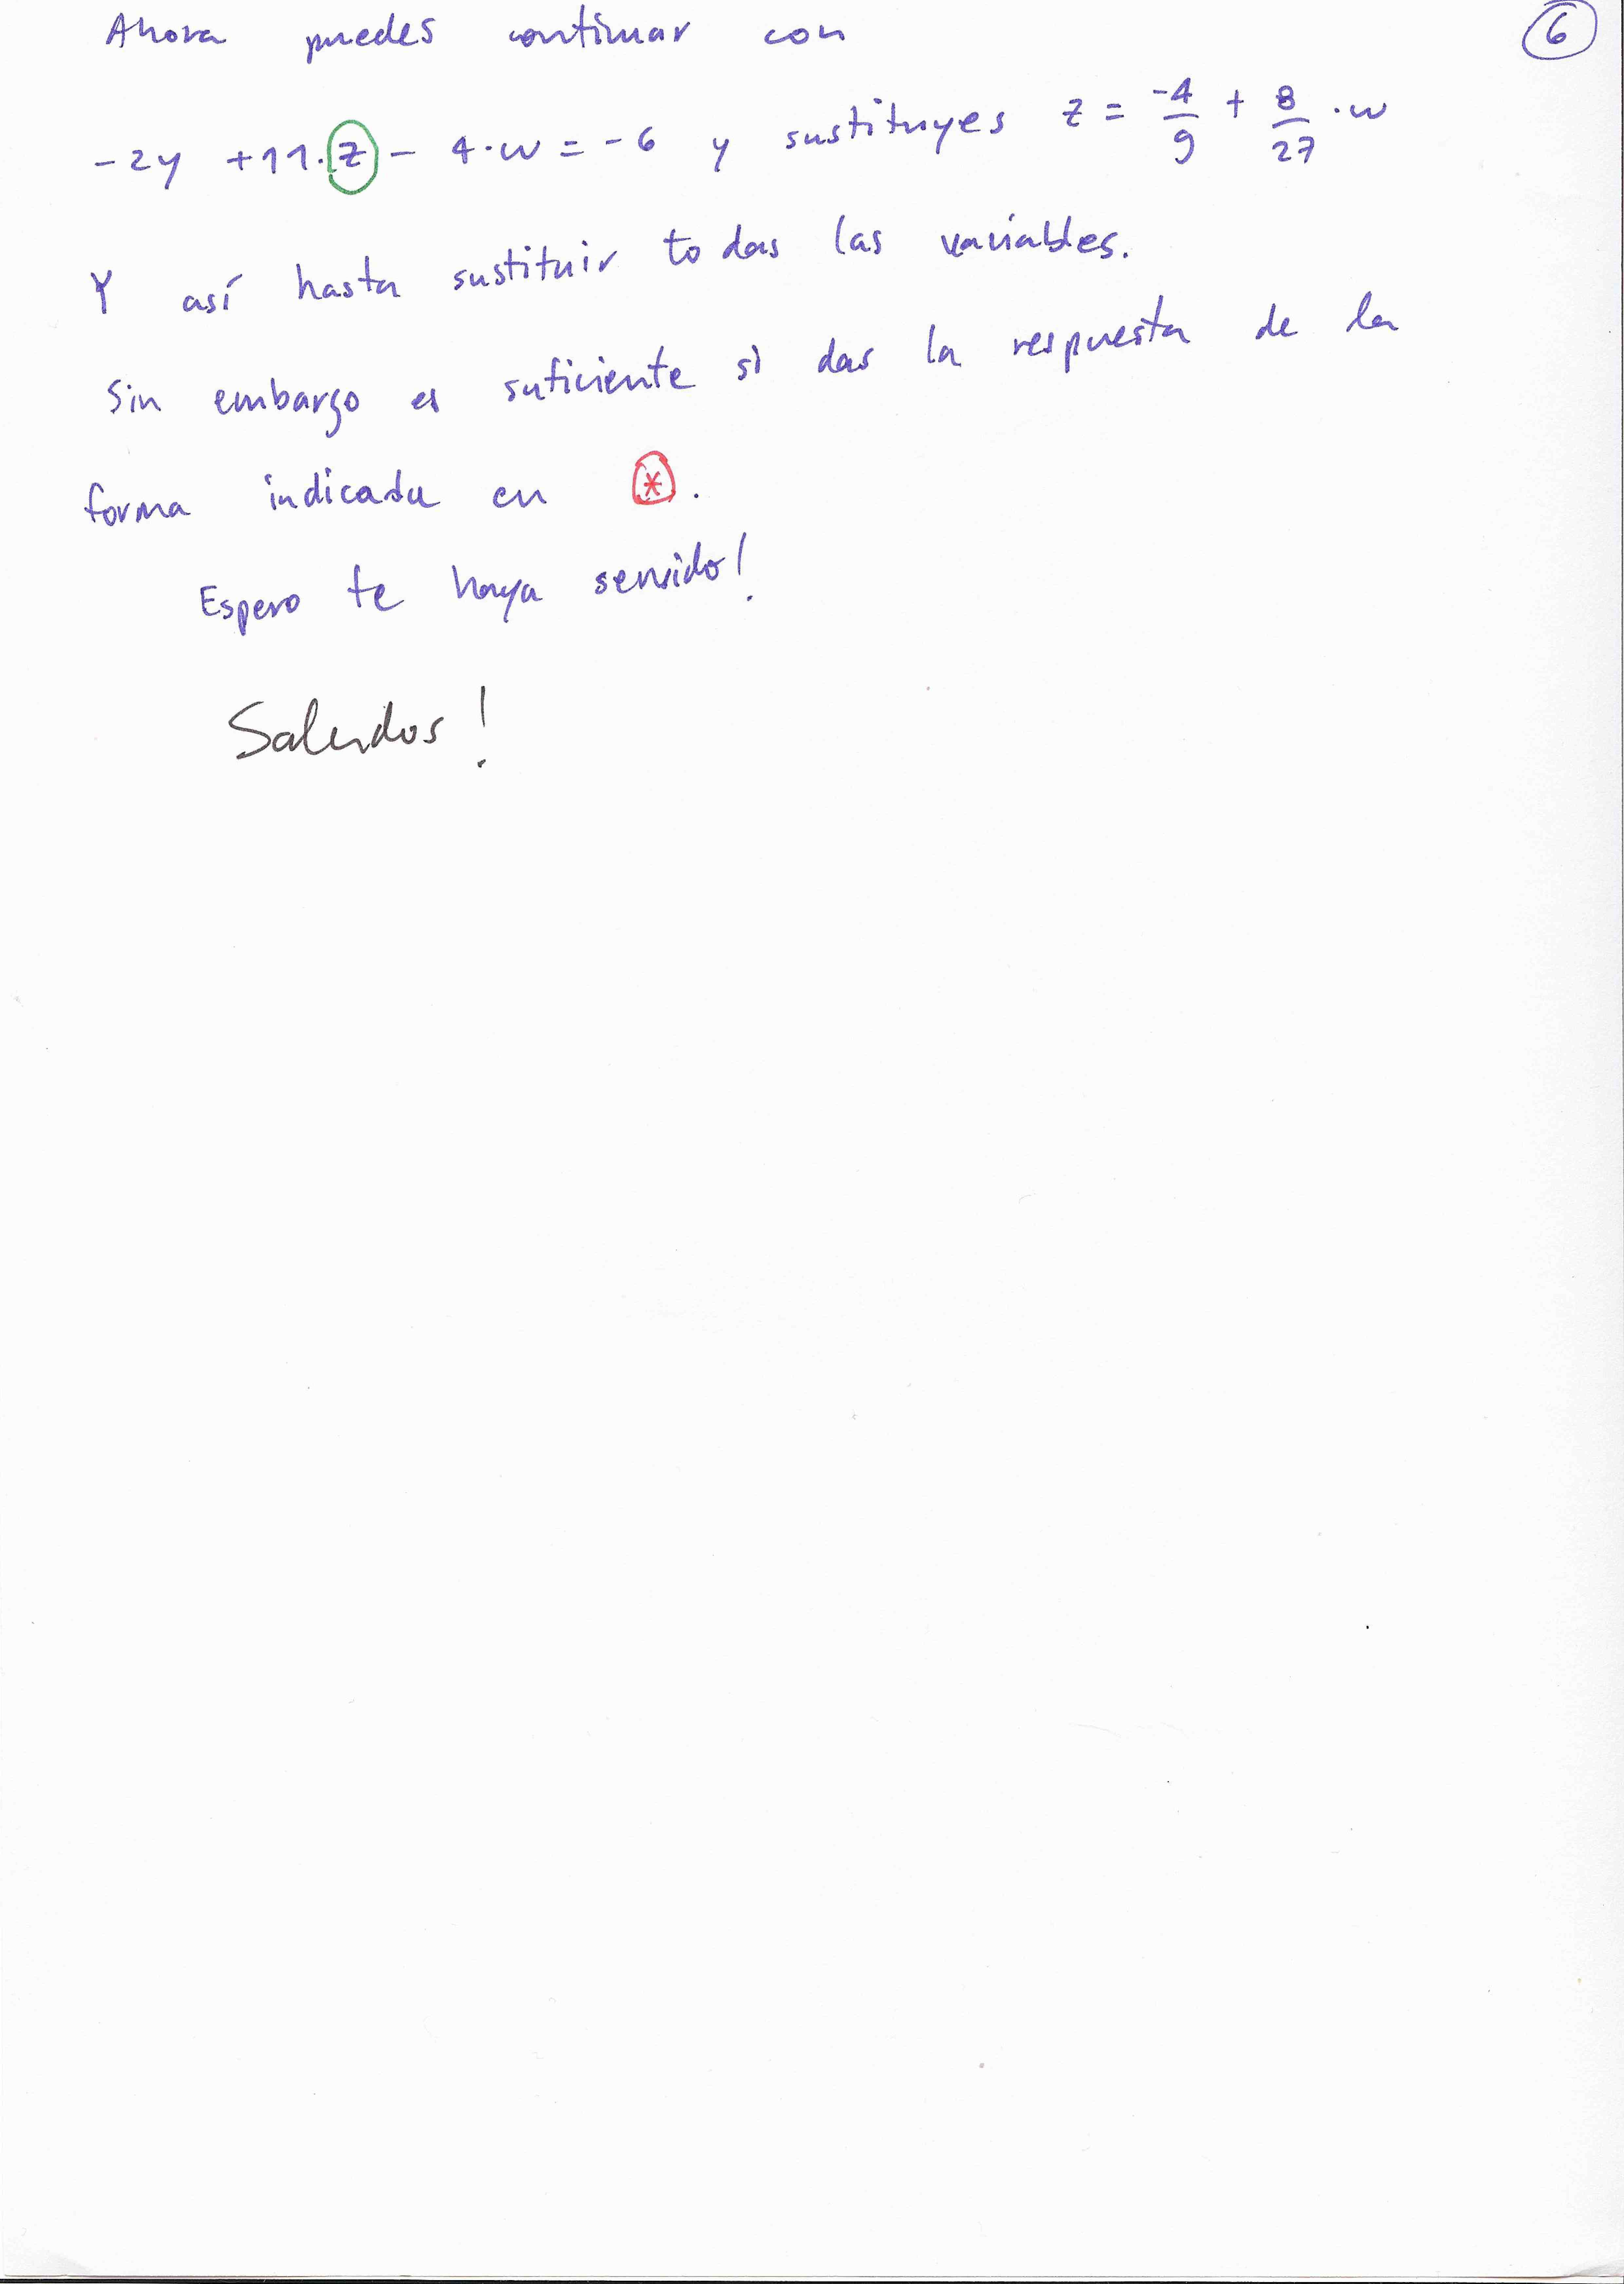 6
Ahora puedes continuar con
-2y +11·z - 4·w = -6 y sustituyes z = -4/9 + 8/27 ·w
Y así hasta sustituir todas las variables.
Sin embargo es suficiente si das la respuesta de la
forma indicada en *.
Espero te haya servido!
Saludos!